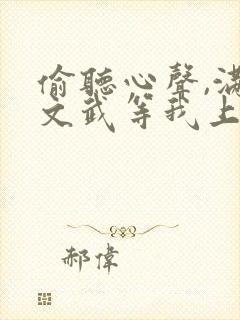 偷聽心聲,滿
文武等我上
郝偉